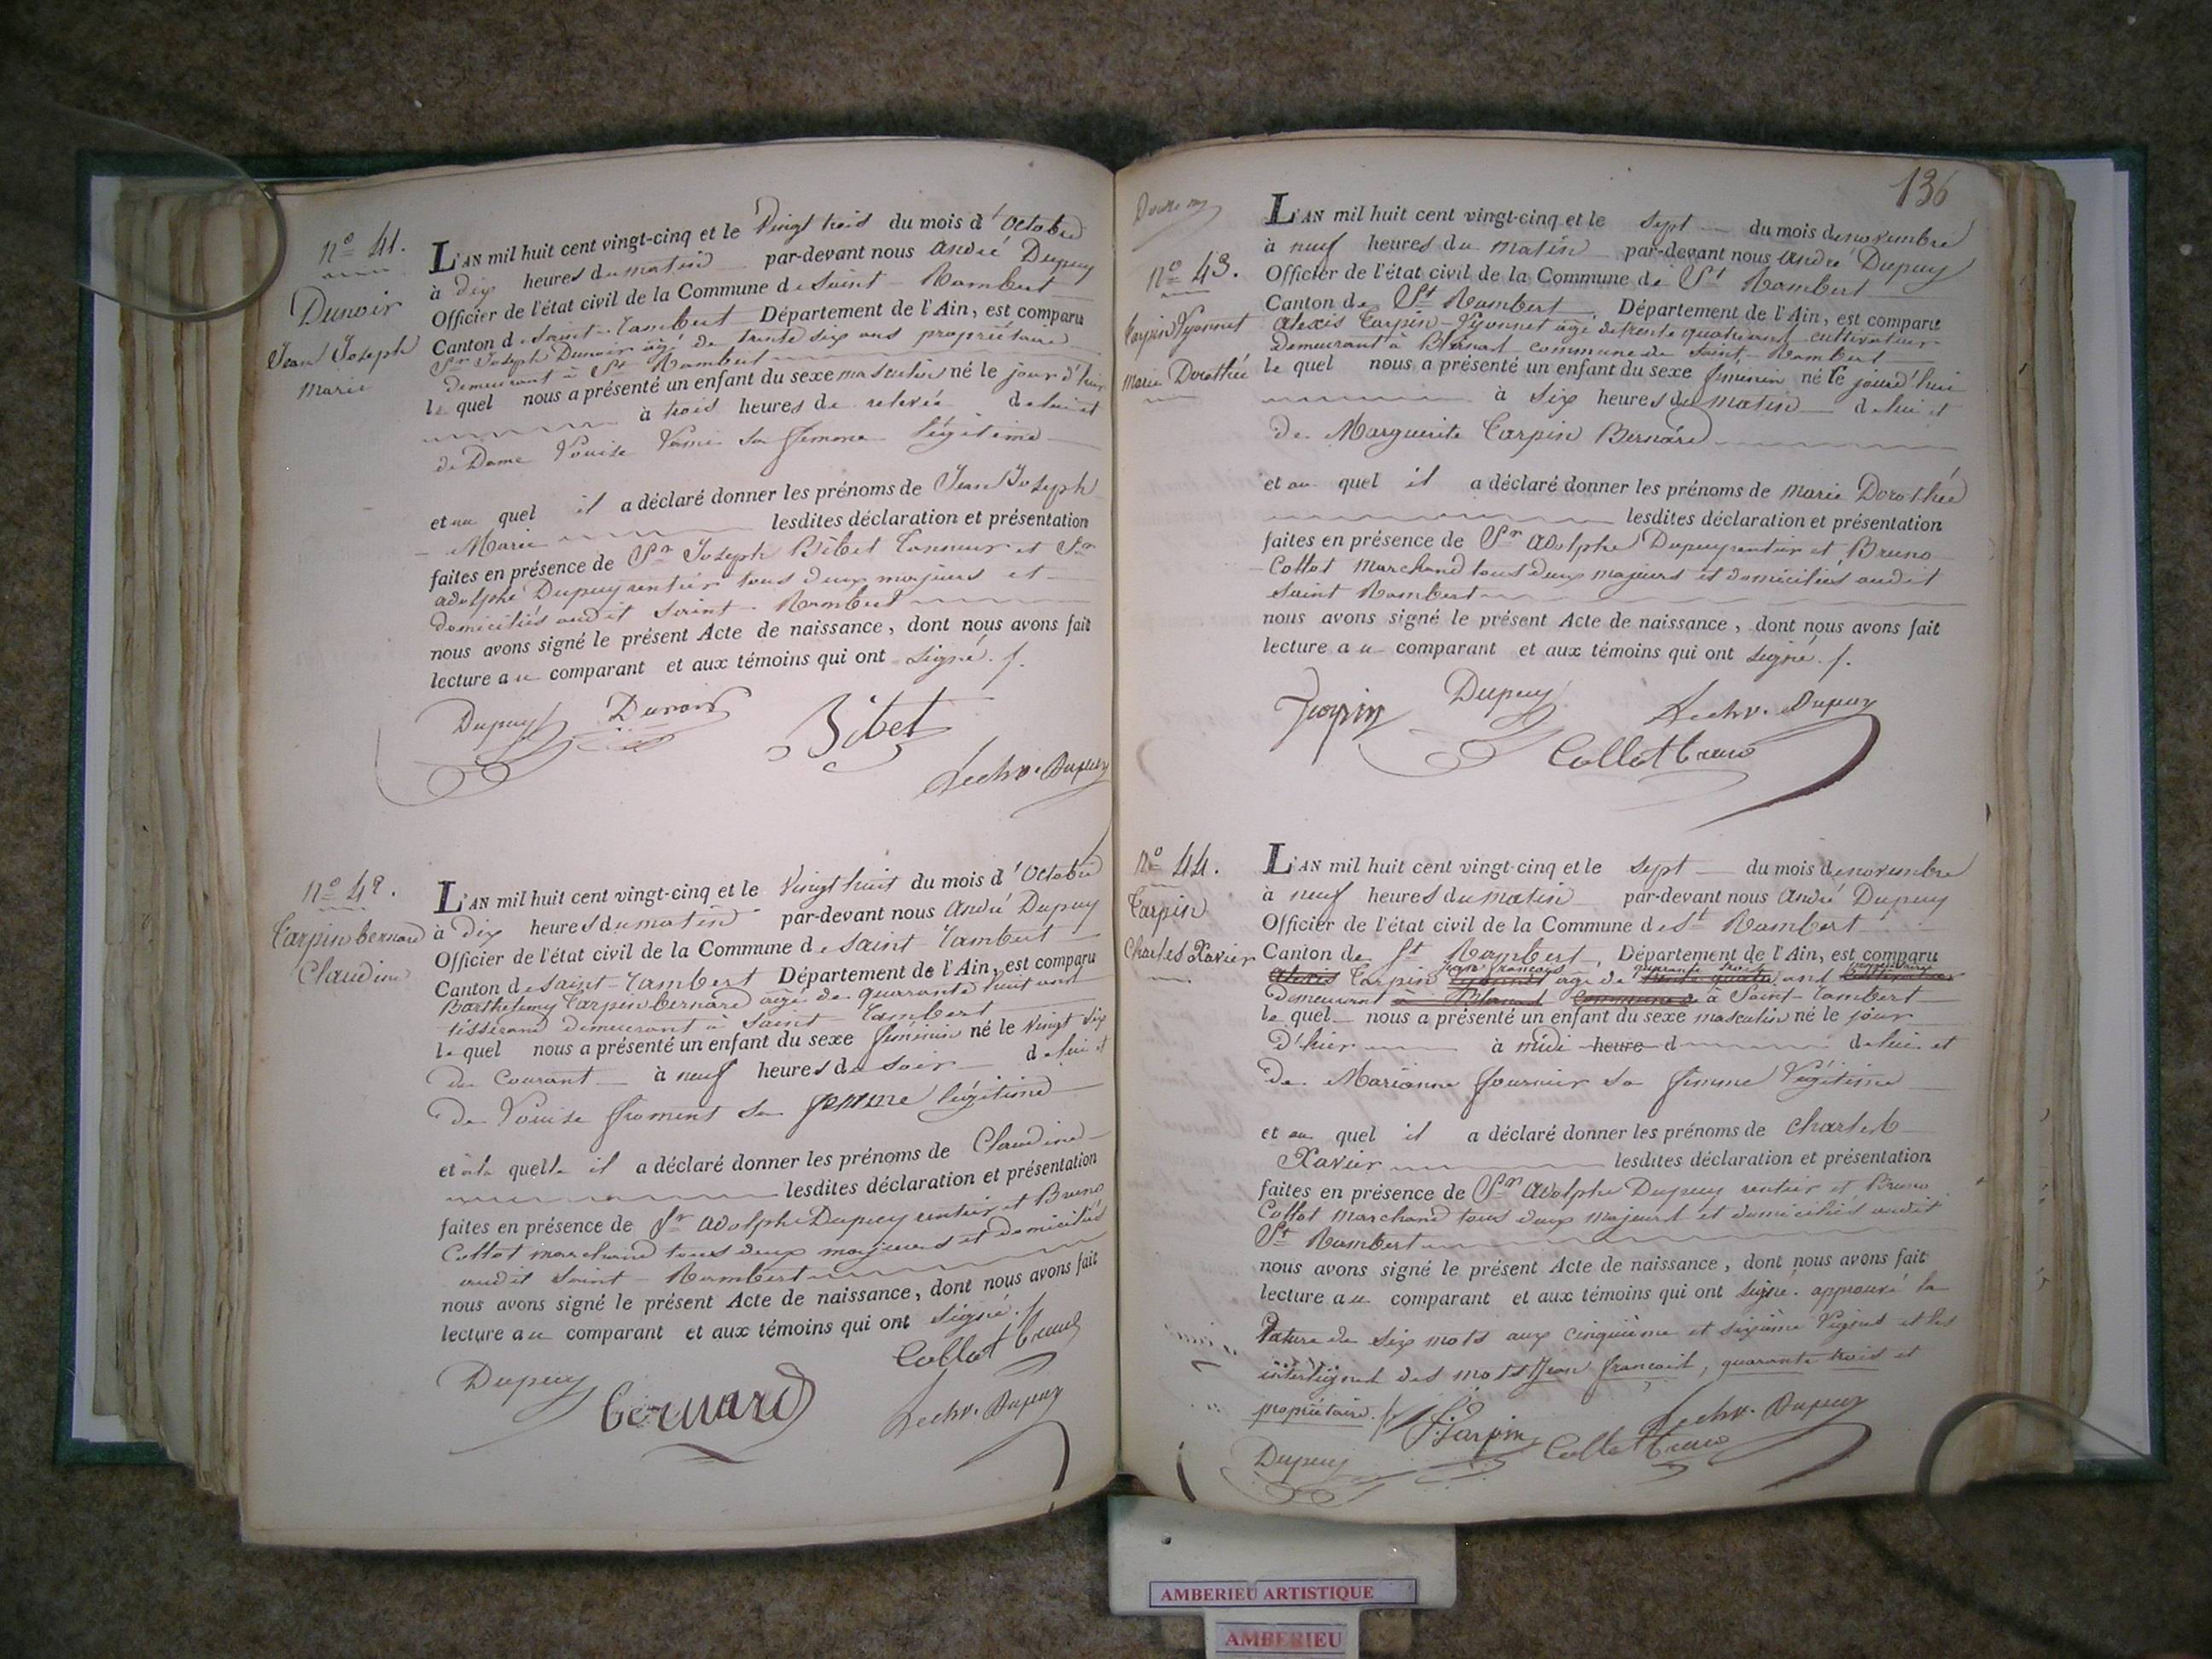 n° 41.
Dunoir
Jean Joseph
Marie
L'AN mil huit cent vingt-cinq et le Vingt trois du mois d'Octobre
à dix heures du matin par-devant nous André Dupuy
Officier de l'état civil de la Commune de Saint-Rambert
Canton de Saint-Rambert Département de l'Ain, est comparu
Sr Joseph Dunoir âgé de trente six ans propriétaire
demeurant à St Rambert
le quel nous a présenté un enfant du sexe masculin né le jour d'hier
à trois heures de relevée de lui et
de Dame Louise sa femme légitime
et au quel il a déclaré donner les prénoms de Jean Joseph
Marie lesdites déclaration et présentation
faites en présence de Sr Joseph Bibet Tanneur et Sr
adolphe Dupuy rentier tous deux majeurs et
domiciliés audit Saint-Rambert
nous avons signé le présent Acte de naissance, dont nous avons fait
lecture au comparant et aux témoins qui ont signé.
Dupuy Dunoir Bibet
Dupuy
n° 42.
Carpin bernard
Claudine
L'AN mil huit cent vingt-cinq et le Vingt huit du mois d'Octobre
à dix heures du matin par-devant nous André Dupuy
Officier de l'état civil de la Commune de Saint-Rambert
Canton de Saint-Rambert Département de l'Ain, est comparu
Barthelemy Carpin bernard âgé de quarante huit ans
tisserand demeurant à Saint Rambert
le quel nous a présenté un enfant du sexe féminin né le Vingt six
du Courant à neuf heures du soir de lui et
de Louise froment sa femme légitime
et à la quelle il a déclaré donner les prénoms de Claudine
lesdites déclaration et présentation
faites en présence de Sr adolphe Dupuy rentier et Bruno
Collot marchand tous deux majeurs et domiciliés
audit Saint-Rambert
nous avons signé le présent Acte de naissance, dont nous avons fait
lecture au comparant et aux témoins qui ont signé.
Collot bruno
Dupuy bernard Dupuy
136
n° 43.
Carpin Vyonnet
Marie Dorothée
L'AN mil huit cent vingt-cinq et le sept du mois de novembre
à neuf heures du matin par-devant nous André Dupuy
Officier de l'état civil de la Commune de St Rambert
Canton de St Rambert, Département de l'Ain, est comparu
alexis Carpin-Vyonnet âgé de trente quatre ans cultivateur
demeurant à Blanat commune de Saint-Rambert
le quel nous a présenté un enfant du sexe féminin né le jourd'hui
à six heures du matin de lui et
de Marguerite Carpin Bernard
et au quel il a déclaré donner les prénoms de Marie Dorothée
lesdites déclaration et présentation
faites en présence de Sr adolphe Dupuy rentier et Bruno
Collot marchand tous deux majeurs et domiciliés audit
Saint Rambert
nous avons signé le présent Acte de naissance, dont nous avons fait
lecture au comparant et aux témoins qui ont signé.
Dupuy Dupuy
Collot bruno
n° 44.
Carpin
Charles Xavier
L'AN mil huit cent vingt-cinq et le sept du mois de novembre
à neuf heures du matin par-devant nous André Dupuy
Officier de l'état civil de la Commune de St Rambert
Canton de St Rambert, Département de l'Ain, est comparu
jean françois quarante trois propriétaire
alexis Carpin Vyonnet âgé de trente quatre ans cultivateur
demeurant à Blanat commune de à Saint-Rambert
le quel nous a présenté un enfant du sexe masculin né le jour
d'hier à midi heure d de lui et
de Marianne fournier sa femme légitime
et au quel il a déclaré donner les prénoms de Charles
Xavier lesdites déclaration et présentation
faites en présence de Sr adolphe Dupuy rentier et Bruno
Collot marchand tous deux majeurs et domiciliés audit
St Rambert
nous avons signé le présent Acte de naissance, dont nous avons fait
lecture au comparant et aux témoins qui ont signé. approuvé la
rature de six mots aux cinquième et sixième lignes et les
interlignes des mots Jean françois, quarante trois et
propriétaire. Carpin Dupuy
Dupuy Collot bruno
AMBERIEU ARTISTIQUE
AMBERIEU